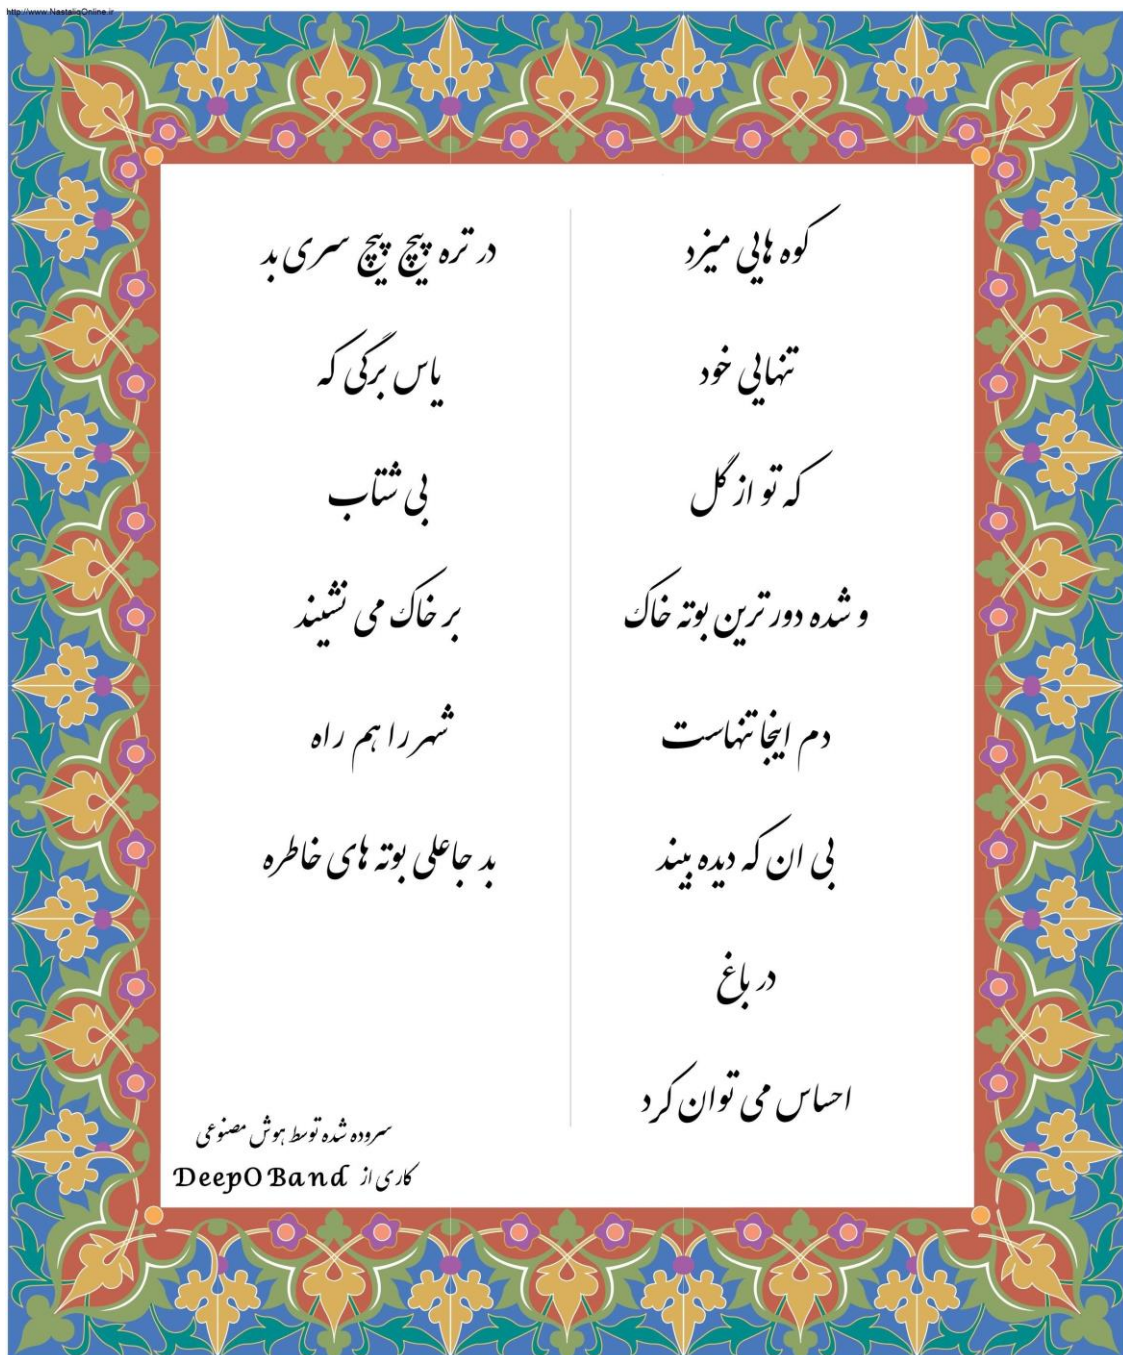 http://www.NastaliqOnline.ir
کوه هایی میزد
تنهایی خود
که تو از گل
و شده دور ترین بوته خاک
دم اینجا تنهاست
بی ان که دیده بیند
در باغ
احساس می توان کرد
در تره پیچ پیچ سری بد
یاس برگی که
بی شتاب
بر خاک می نشیند
شهر را هم راه
بد جاعلی بوته های خاطره
سروده شده توسط هوش مصنوعی
کاری از DeepOBand